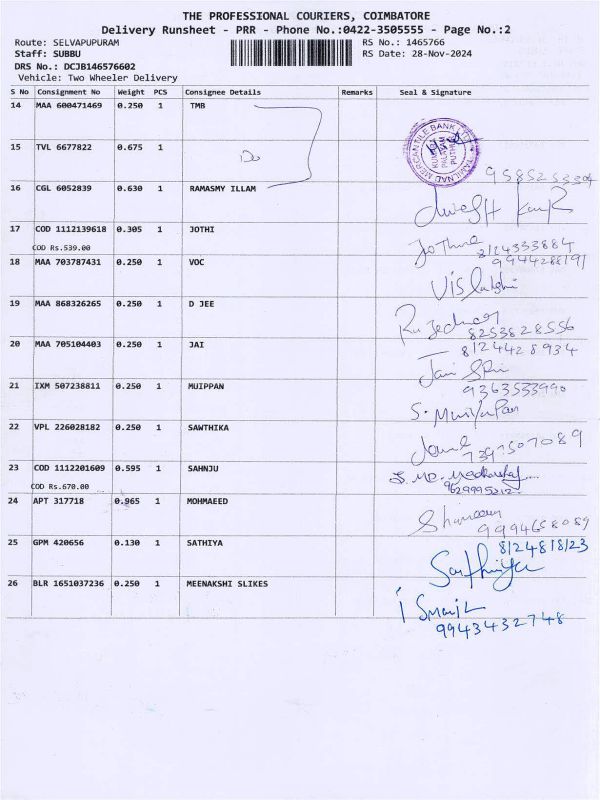 THE PROFESSIONAL COURIERS, COIMBATORE
Delivery Runsheet - PRR - Phone No.:0422-3505555 - Page No.:2
Route: SELVAPUPURAM RS No.: 1465766
Staff: SUBBU RS Date: 28-Nov-2024
DRS No.: DCJB146576602
Vehicle: Two Wheeler Delivery
S No Consignment No Weight PCS Consignee Details Remarks Seal & Signature
14 MAA 600471469 0.250 1 TMB
TAMILNAD MERCANTILE BANK LTD
15 TVL 6677822 0.675 1 Do
16 CGL 6052839 0.630 1 RAMASMY ILLAM
17 COD 1112139618 0.305 1 JOTHI 8124333884
COD Rs.539.00
18 MAA 703787431 0.250 1 VOC 9944288191
19 MAA 868326265 0.250 1 D JEE
8253828556
20 MAA 705104403 0.250 1 JAI 8124428934
Jai Sri
21 IXM 507238811 0.250 1 MUIPPAN 9363533990
22 VPL 226028182 0.250 1 SAWTHIKA
7397507089
23 COD 1112201609 0.595 1 SAHNJU
COD Rs.670.00
24 APT 317718 0.965 1 MOHMAEED
9994658089
25 GPM 420656 0.130 1 SATHIYA 8124818123
Sathiya
26 BLR 1651037236 0.250 1 MEENAKSHI SLIKES
ismail
9943432748